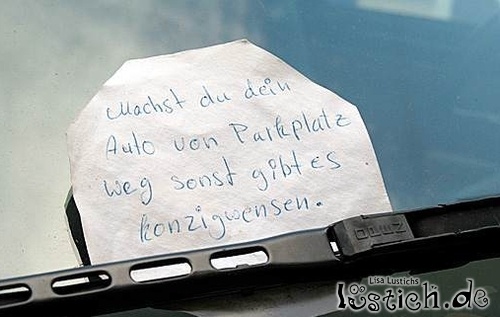 Machst du dein
Auto von Parkplatz
weg sonst gibt es
konzigwensen.
Lisa Lustichs
lüstich.de